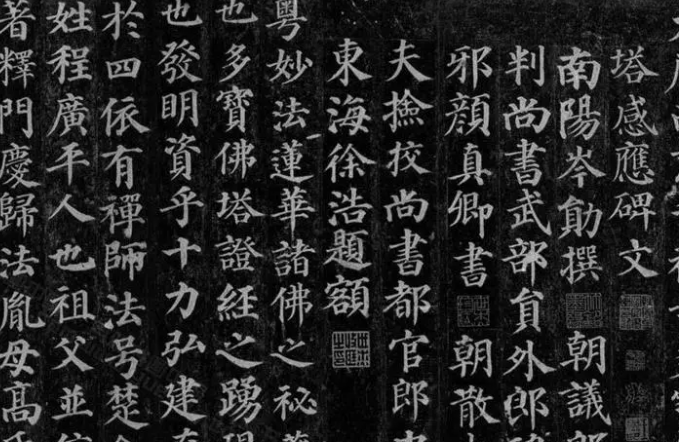 塔感應碑文
南陽岑勛撰 朝議
判尚書武部員外郎
邪顏真卿書 朝散
夫撿挍尚書都官郎
東海徐浩題額
粤妙法蓮華諸佛之秘
也多寶佛塔證經之踴
也發明資乎十力弘建
於四依有禪師法号楚
姓程廣平人也祖父並
著釋門慶歸法胤母高